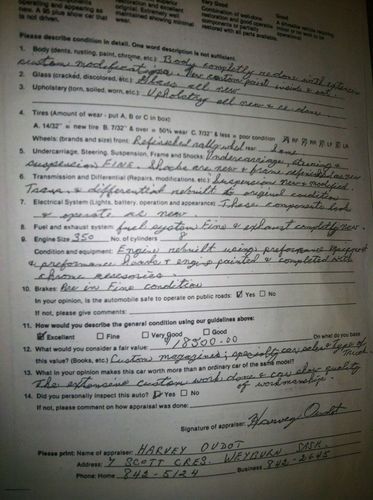 operating components
are as new.
A. Fig and appearing as
original. Extremely well
maintained showing minimal
wear.
Very Good
Combination of well-done
restoration and good
Good
Please describe condition in detail. One word description is not sufficient.
1. Body (dents, rusting, paint, chrome, etc.) Body completly redone with extensive
custom modifications. New custom paint inside & out
2. Glass (cracked, discolored, etc.) Glass all new
3. Upholstery (torn, soiled, worn, etc.) Upholstry all new & re done.
4. Tires (Amount of wear - put A, B or C in box)
A. 14/32" = new tire B. 7/32" & over = 50% wear C. 7/32" & less = poor condition
Wheels: (brands and size) front: Refinished rally wheel rear: same
5. Undercarriage, Steering, Suspension, Frame and Shocks: Undercarriage, steering &
suspension FINE. Shocks are new & frame refinished as new
6. Transmission and Differential (Repairs, modifications, etc.) Suspension New & modified.
Trans. & differential rebuilt to original condition
7. Electrical System (Lights, battery, operation and appearance) These components look
& operate as new.
8. Fuel and exhaust system: fuel system Fine & exhaust completly new.
9. Engine Size 350 No. of cylinders
Condition and equipment: Engine rebuilt using preformance equipment
& preformance & engine painted & completed with
chrome accesories.
10. Brakes: Are in Fine condition
In your opinion, is the automobile safe to operate on public roads: Yes No
If not, please give comments:
11. How would you describe the general condition using our guidelines above:
Excellent Fine Very Good Good
12. What would you consider a fair value: $18500.00 On what do you base
this value? (Books, etc.) Custom magazines; specialty car sales & type of
13. What in your opinion makes this car worth more than an ordinary car of the same model?
The extensive custom work done & can show quality
of workmanship.
14. Did you personally inspect this auto? Yes No
If not, please comment on how appraisal was done:
Signature of appraiser: Harvey Oudot
Please print: Name of appraiser: HARVEY OUDOT
Address: 7 SCOTT CRES. WEYBURN SASK.
Phone: Home 842-5124 Business 842-2645